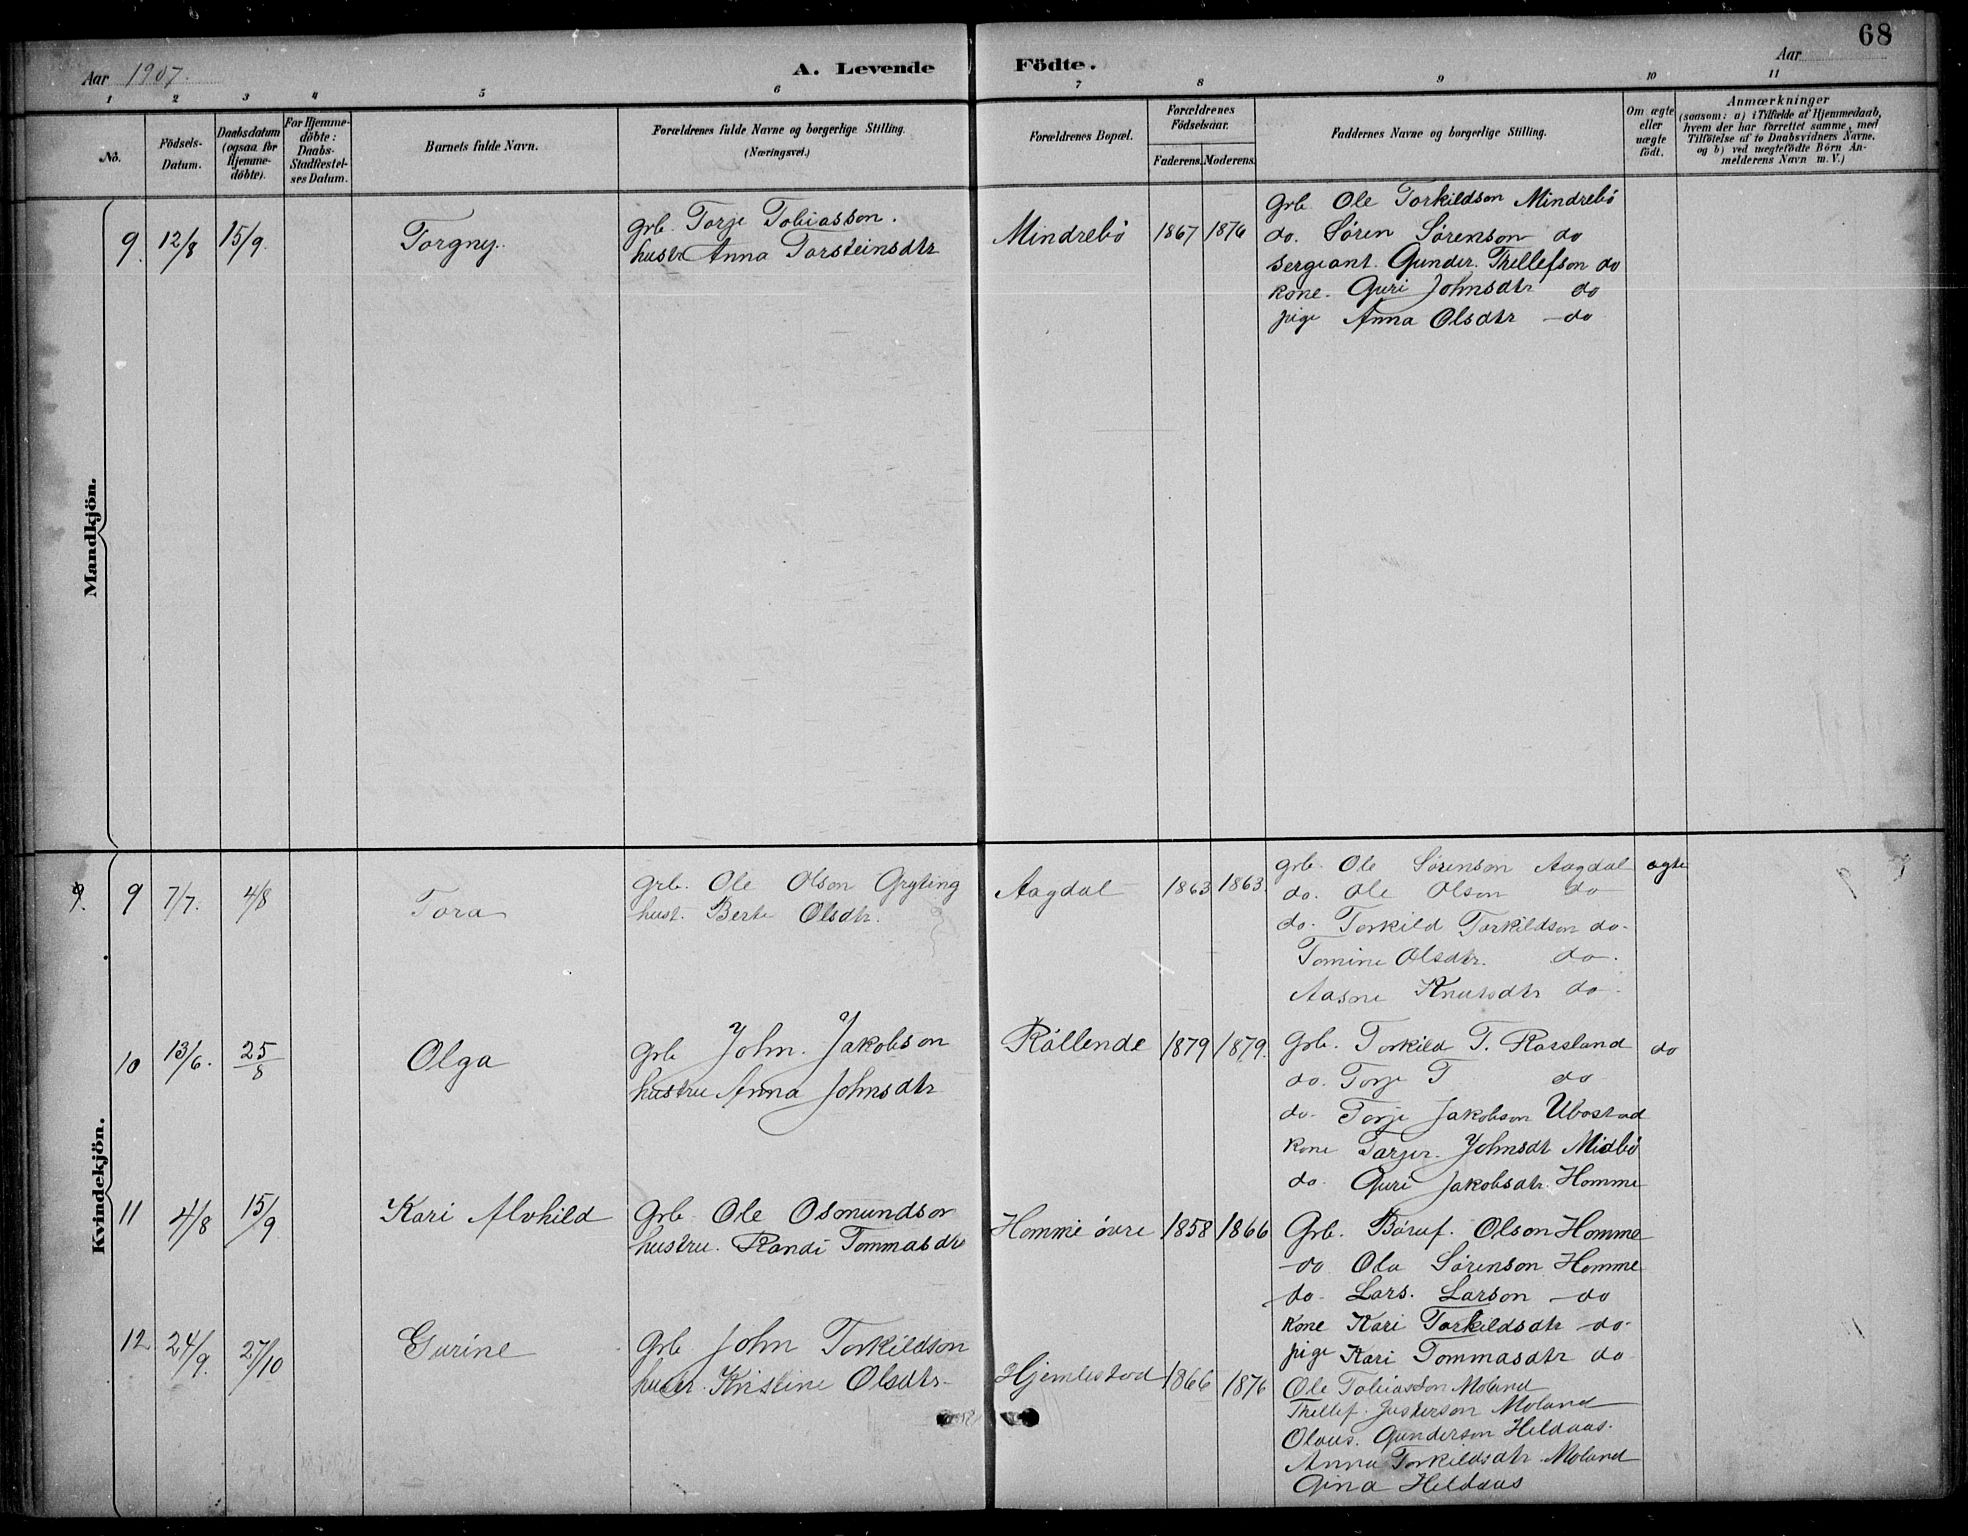 68
Aar 1907.
A. Levende Födte.
Aar
1 2 3 4 5 6 7 8 9 10 11
No.
Födsels-
Datum.
Daabsdatum
(ogsaa for
Hjemme-
döbte).
For Hjemme-
döbte:
Daabs-
Stadfæstel-
ses Datum.
Barnets fulde Navn.
Forældrenes fulde Navne og borgerlige Stilling.
(Næringsvei.)
Forældrenes Bopæl.
Forældrenes
Födselsaar.
Faderens. Moderens.
Faddernes Navne og borgerlige Stilling.
Om ægte
eller
uægte
födt.
Anmærkninger
(saasom: a) i Tilfælde af Hjemmedaab,
hvem der har forrettet samme, med
Tilföielse af to Daabsvidners Navne.
og b) ved uægtefödte Börn An-
melderens Navn m. V.)
Mandkjön.
9. 12/8 15/9. Torgny.
grb. Torje Tobiasson.
hustr Anna Torsteinsdtr
Mindrebö 1867 1876
grb. Ole Torkildson Mindrebö
do. Sören Sörenson do
Sergeant. Gunder. Thellefson do
kone. Guri Johnsdtr do
pige Anna Olsdtr do
Kvindekjön.
9. 9 7/7. 4/8 Tora
grb. Ole Olson Gryting
hust. Berte Olsdtr.
Aagdal 1863 1863.
grb. Ole Sörenson Aagdal
do. Ole Olson do
do. Torkild Torkildson do.
Tomine Olsdtr. do.
Aasne Knutsdtr do.
ægte
10 13/6. 25/8 Olga
grb John. Jakobson
hustru Anna Johnsdtr
Röllende 1879 1879.
Grb. Torkild T. Rorsland
do. Torje T do
do. Torje Jakobson Ubostad
kone Torjer. Johnsdt Midbö
do. Guri Jakobsdtr. Homme
do
11 4/8 15/9 Kari Alvhild
Grb Ole Osmundson
hustru. Randi Tommasdtr
Homme övre 1858 1866
Grb. Böruf. Olson Homme
do Ola Sörenson Homme
do. Lars. Larson do
Kone Kari Torkildsdtr do.
pige Kari Tommasdtr do
12 24/9. 27/10 Gurine
Grb John Torkildson
hustr. Kristine Olsdtr
Hjemlestod 1866 1876
Ole Tobiasson Moland
Thellef. Justerson Moland
Olaus. Gunderson Heldaas.
Anna Torkildsdtr. Moland
Gina Heldaas